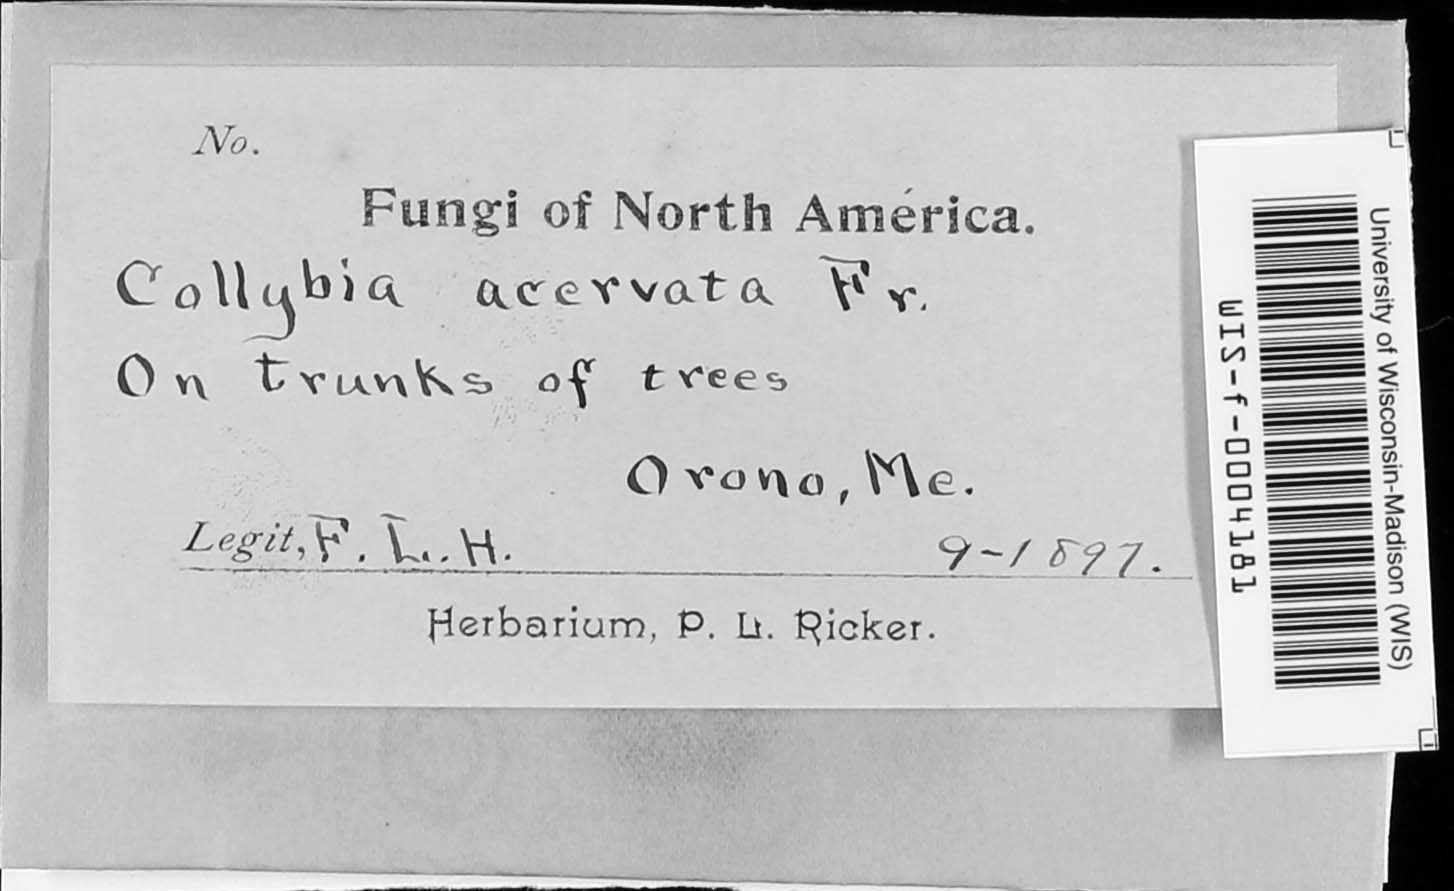 No.
Fungi of North América.
Collybia acervata Fr.
On trunks of trees
Orono, Me.
Legit, F. L. H. 9-1897.
Herbarium, P. L. Ricker.
University of Wisconsin-Madison (WIS)
WIS-f-0004181